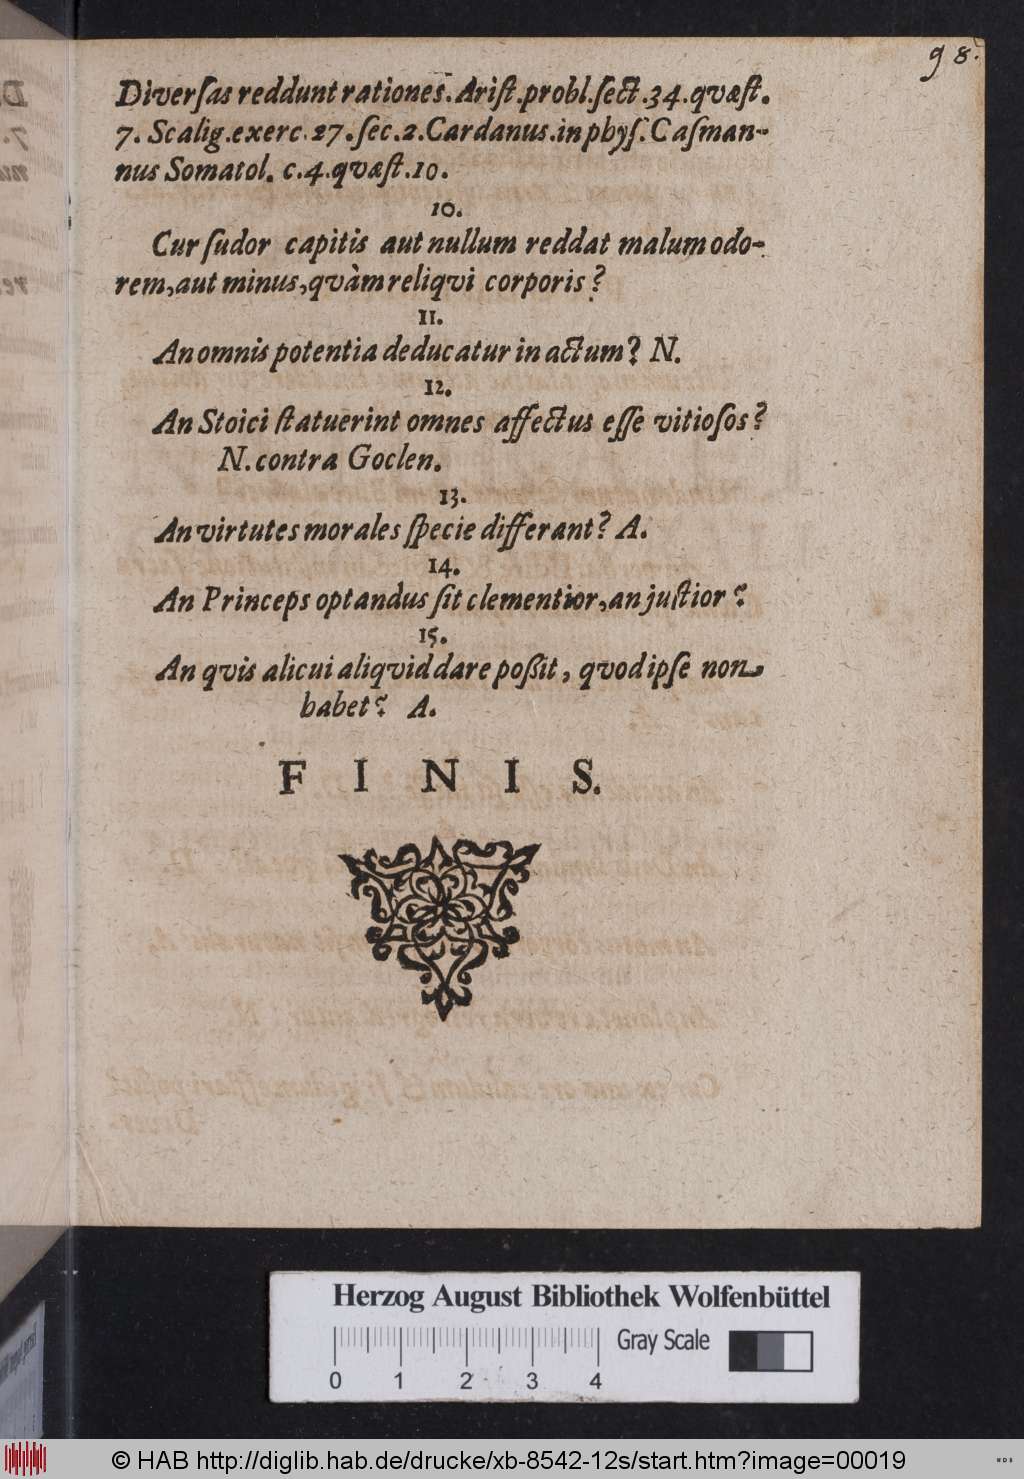 98.
Diverſas reddunt rationes. Ariſt. probl. ſect. 34. qvæſt.
7. Scalig. exerc. 27. ſec. 2. Cardanus. in phyſ. Caſman-
nus Somatol. c. 4. qvæſt. 10.
10.
Cur ſudor capitis aut nullum reddat malum odo-
rem, aut minus, qvàm reliqvi corporis?
11.
An omnis potentia deducatur in actum? N.
12.
An Stoici ſtatuerint omnes affectus eſſe vitioſos?
N. contra Goclen.
13.
An virtutes morales ſpecie differant? A.
14.
An Princeps optandus ſit clementior, an juſtior?
15.
An qvis alicui aliqvid dare poßit, qvod ipſe non
habet? A.
F I N I S.
Herzog August Bibliothek Wolfenbüttel
Gray Scale
0 1 2 3 4
© HAB http://diglib.hab.de/drucke/xb-8542-12s/start.htm?image=00019